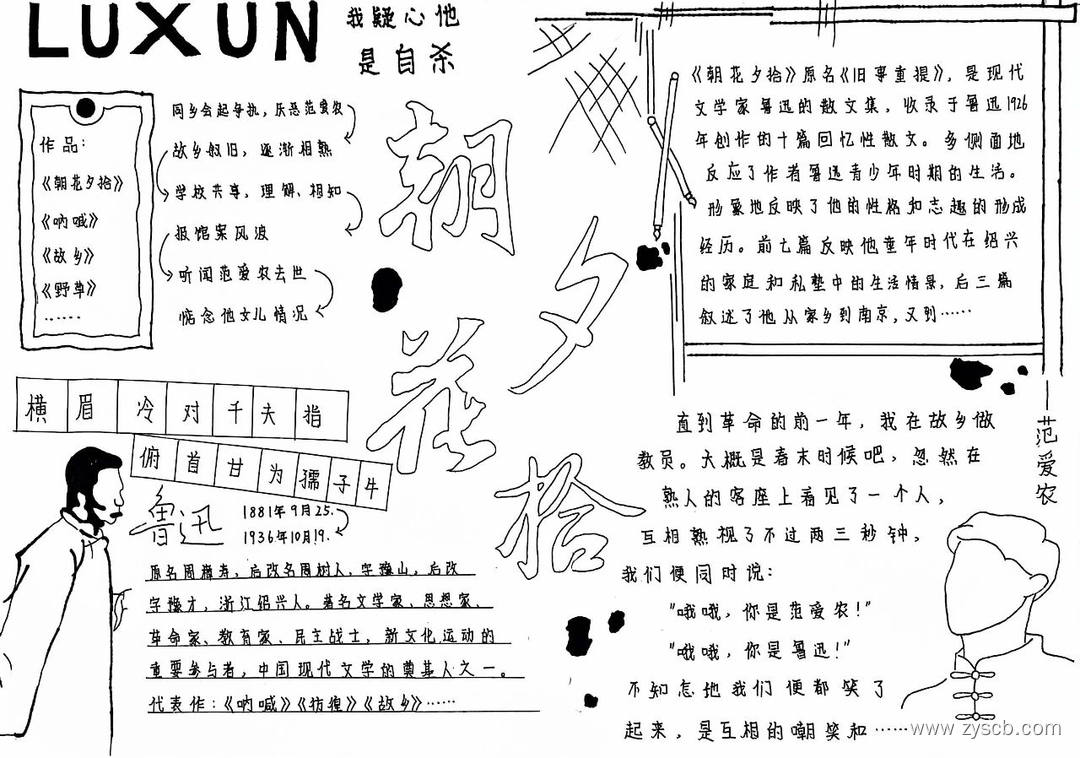 LUXUN
我疑心他
是自杀
作品：
《朝花夕拾》
《呐喊》
《故乡》
《野草》
……
同乡会起争执，厌恶范爱农
故乡叙旧，逐渐相熟
学校共事，理解、相知
报馆案风波
听闻范爱农去世
惦念他女儿情况
朝
夕
花
拾
《朝花夕拾》原名《旧事重提》，是现代
文学家鲁迅的散文集，收录于鲁迅1926
年创作的十篇回忆性散文。多侧面地
反应了作者鲁迅青少年时期的生活。
形象地反映了他的性格和志趣的形成
经历。前七篇反映他童年时代在绍兴
的家庭和私塾中的生活情景，后三篇
叙述了他从家乡到南京，又到……
横眉冷对千夫指
俯首甘为孺子牛
鲁迅
1881年9月25.
1936年10月19.
原名周樟寿，后改名周树人，字豫山，后改
字豫才，浙江绍兴人。著名文学家、思想家、
革命家、教育家、民主战士，新文化运动的
重要参与者，中国现代文学的奠基人之一。
代表作：《呐喊》《彷徨》《故乡》……
范爱农
直到革命的前一年，我在故乡做
教员。大概是春末时候吧，忽然在
熟人的客座上看见了一个人，
互相熟视了不过两三秒钟，
我们便同时说：
“哦哦，你是范爱农！”
“哦哦，你是鲁迅！”
不知怎地我们便都笑了
起来，是互相的嘲笑和……
www.zyscb.com